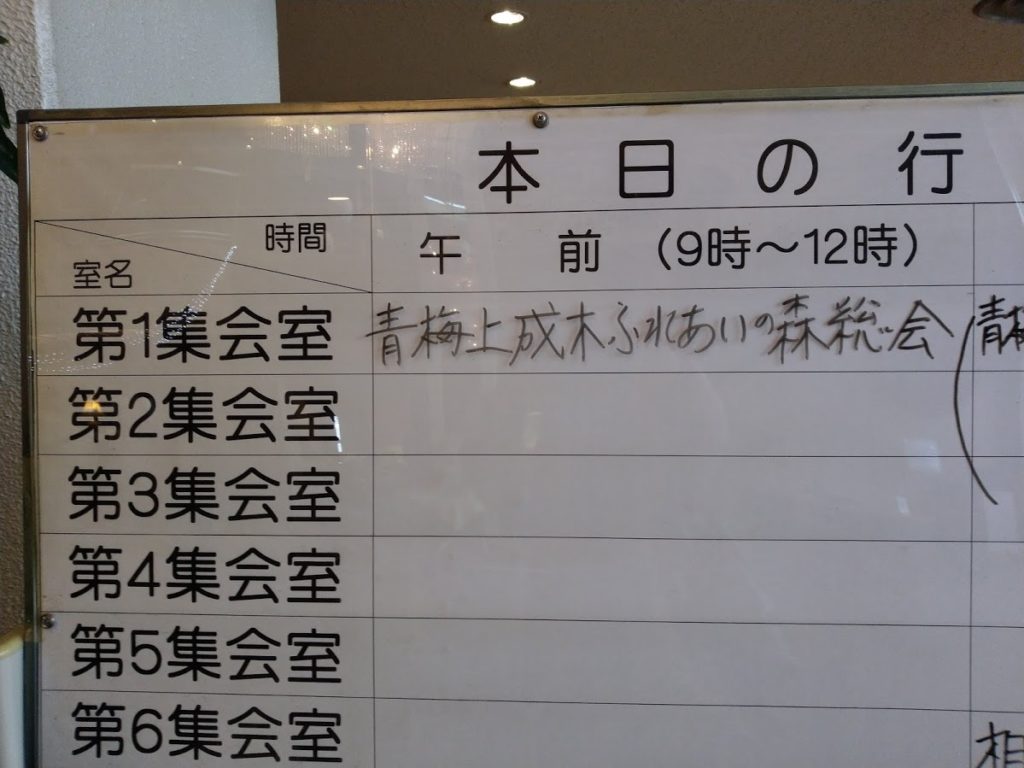 本日の行
時間
室名
午前 (9時～12時)
第1集会室 青梅上成木ふれあいの森総会 青梅
第2集会室
第3集会室
第4集会室
第5集会室
第6集会室 相